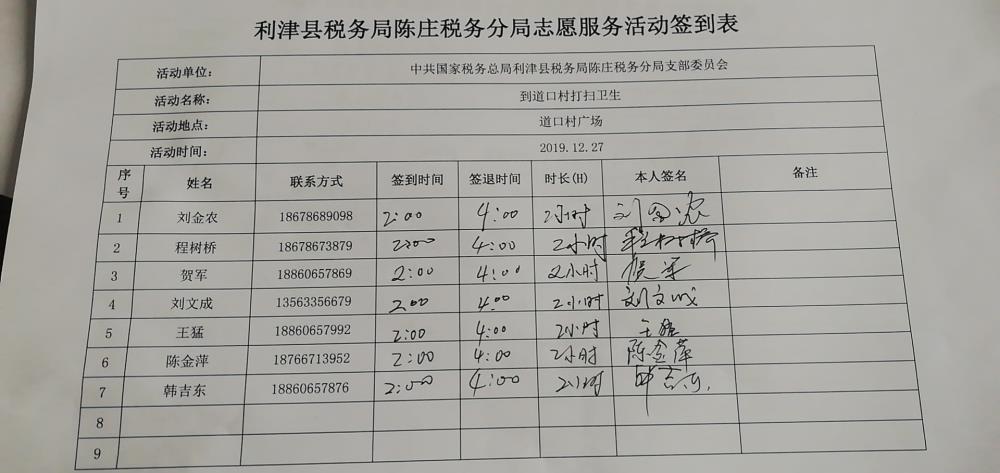 利津县税务局陈庄税务分局志愿服务活动签到表
活动单位： 中共国家税务总局利津县税务局陈庄税务分局支部委员会
活动名称： 到道口村打扫卫生
活动地点： 道口村广场
活动时间： 2019.12.27
序号 姓名 联系方式 签到时间 签退时间 时长(H) 本人签名 备注
1 刘金农 18678689098 2:00 4:00 2小时 刘金农
2 程树桥 18678673879 2:00 4:00 2小时 程树桥
3 贺军 18860657869 2:00 4:00 2小时
4 刘文成 13563356679 2:00 4:00 2小时 刘文成
5 王猛 18860657992 2:00 4:00 2小时 王猛
6 陈金萍 18766713952 2:00 4:00 2小时 陈金萍
7 韩吉东 18860657876 2:00 4:00 2小时
8
9